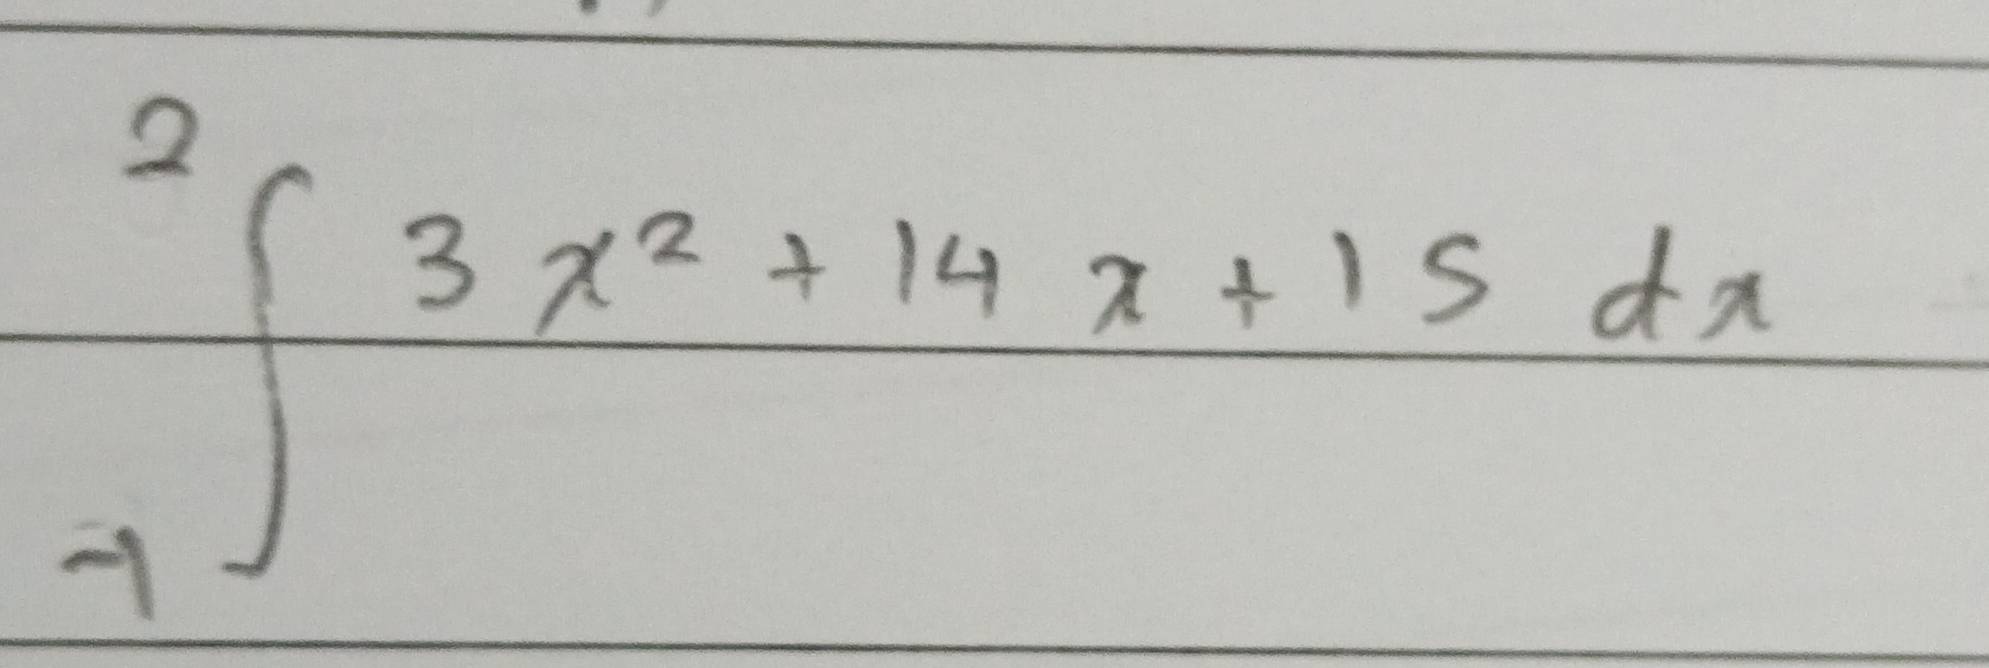 2
∫ 3x² + 14x + 15 dx
-1